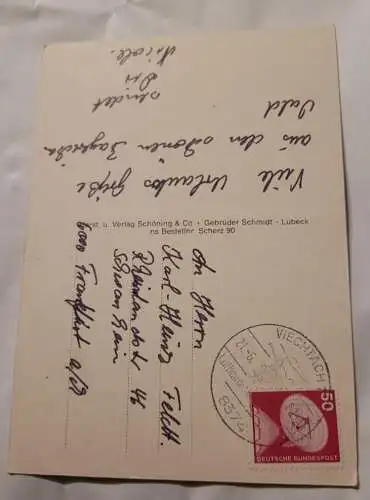 Viele Urlaubsgrüße
aus den schönen Bayerischen
Wald
sendet
Dir
Nicole.
Verlag Schöning & Co · Gebrüder Schmidt · Lübeck
Bestellnr. Scherz 90
An Herrn
Karl-Heinz
46
6000 Frankfurt a/M
VIECHTACH
21.-6.
8374
50
DEUTSCHE BUNDESPOST